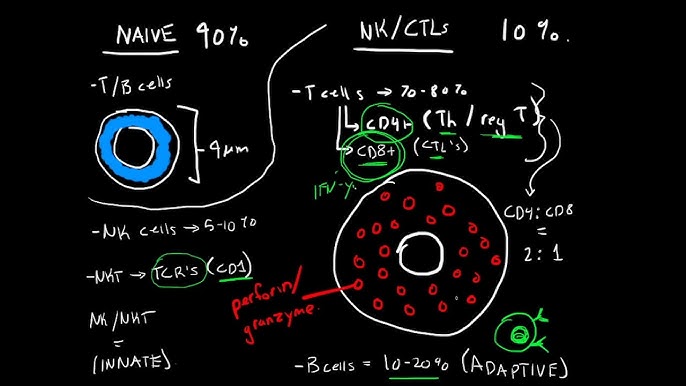 NAIVE 90%
-T/B cells
4μm
-NK cells → 5-10%
-NKT → TCR's (CD1)
NK/NKT
=
(INNATE)
NK/CTLs 10%.
-T cells → 70-80%
CD4+ (Th / reg T)
CD8+ (CTL's)
IFN-γ.
CD4:CD8
=
2:1
perforin/
granzyme.
-B cells = 10-20% (ADAPTIVE)